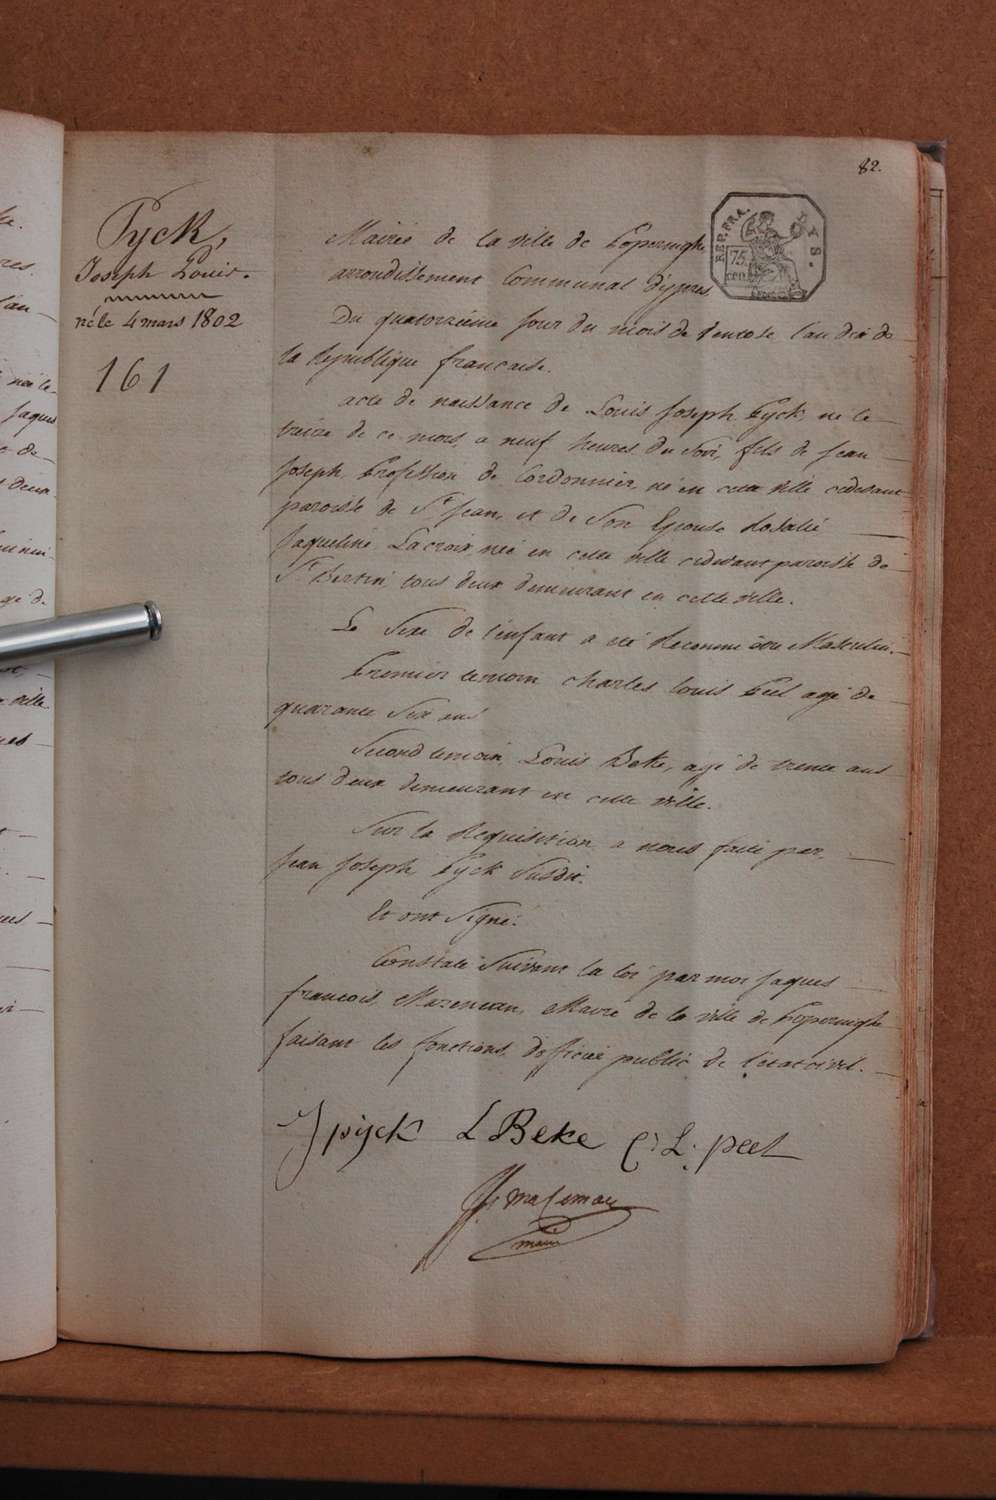 82.
Pyck,
Joseph Louis.
né le 4 mars 1802
161
REP. FRA.
75
cen.
Mairie de la ville de Poperinghe
arrondissement Communal d'ypres
Du quatorzième jour du mois de ventose l'an dix de
la Republique francaise.
acte de naissance de Louis Joseph Pyck, né le
treize de ce mois, a neuf heures du Soir, fils de Jean
Joseph, Profession de Cordonnier, né en cette ville cidevant
paroisse de St Jean, et de Son Epouse Rosalie
Jaqueline Lacroix née en cette ville cidevant paroisse de
St Bertin, tous deux demeurant en cette ville.
Le Sexe de l'enfant a été Reconnu être Masculin.
Premier temoin Charles Louis Peel agé de
quarante Six ans
Second temoin Louis Beke, agé de trente ans
tous deux demeurant en cette ville.
Sur la Requisition a nous faite par
Jean Joseph Pyck Susdit.
Et ont Signé.
Constaté Suivant la loi par moi Jaques
francois Mazeman, Maire de la ville de Poperinghe
faisant les fonctions d'officier public de l'etat civil.
J pyck L Beke C: L: peel
Mazeman
maire